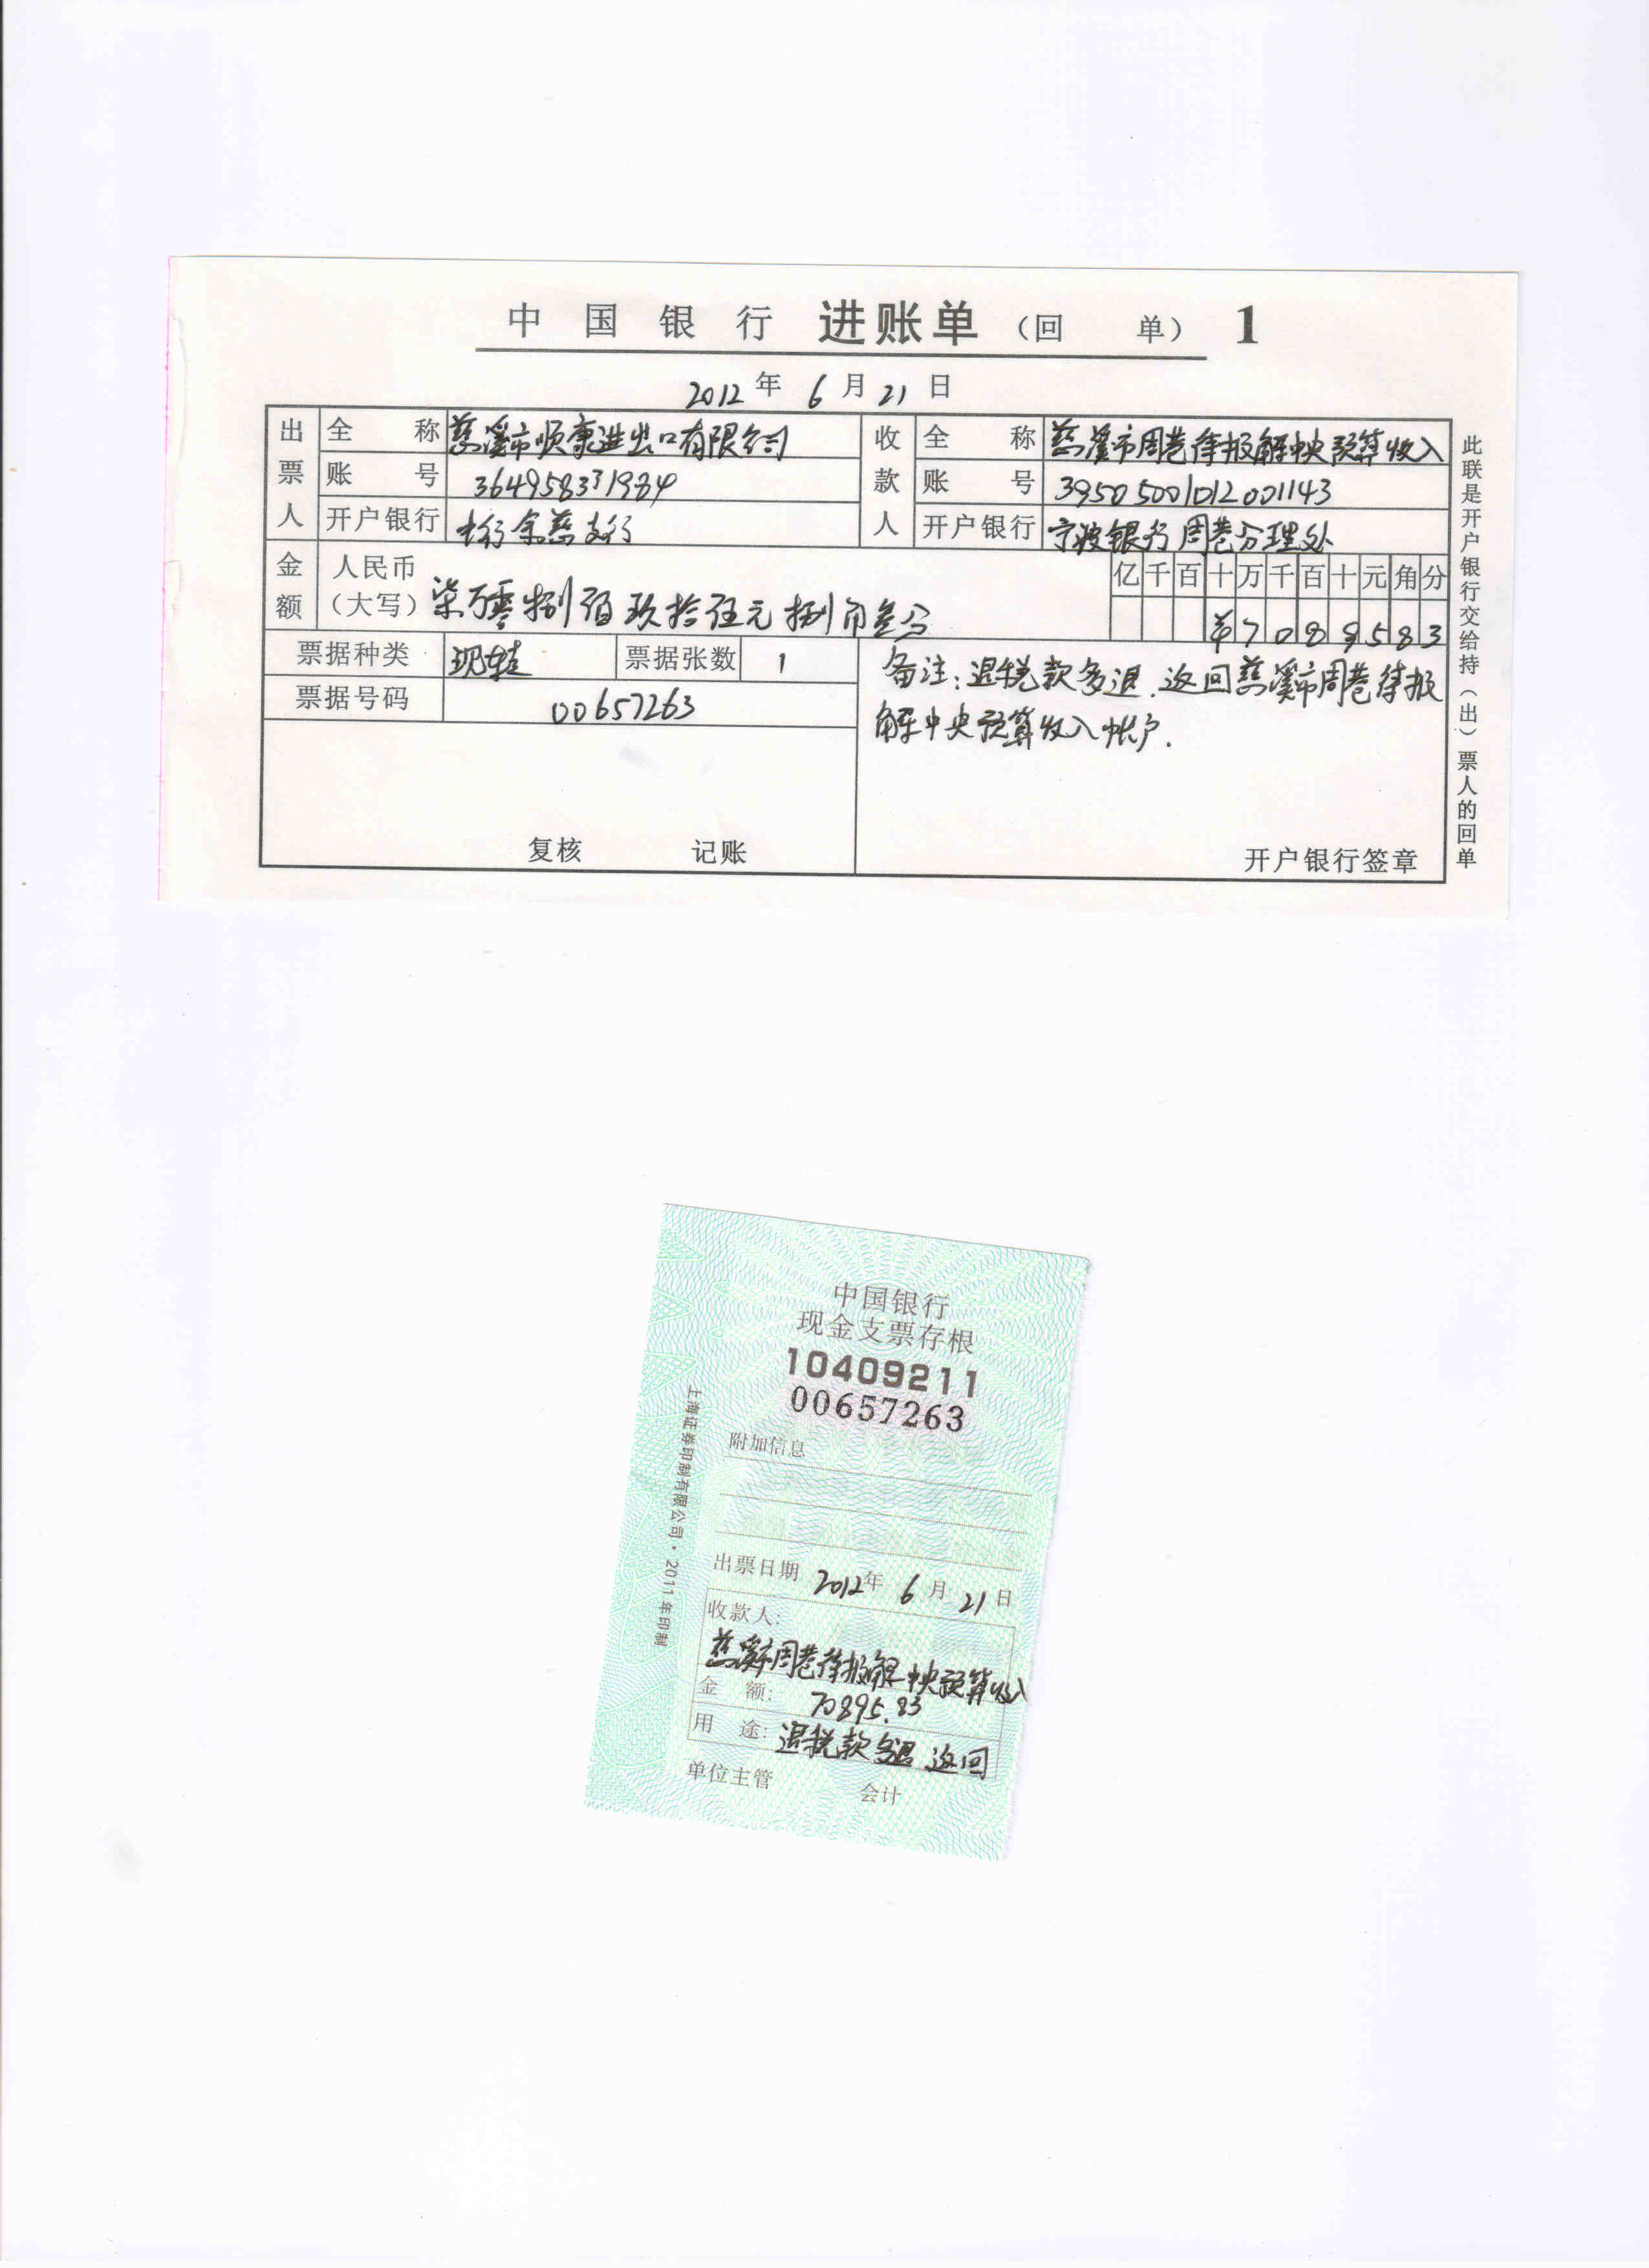 中国银行 进账单（回 单） 1
2012年 6月21日
出票人 全称 慈溪市顺康进出口有限公司 收款人 全称 慈溪市周巷待报解中央预算收入
账号 364958331984 账号 39505001012001143
开户银行 中行余慈支行 开户银行 宁波银行周巷分理处
金额 人民币（大写） 柒万零捌佰玖拾伍元捌角叁分 亿千百十万千百十元角分
¥7089583
票据种类 现转 票据张数 1
票据号码 00657263
备注：退税款多退，返回慈溪市周巷待报
解中央预算收入帐户.
复核 记账
开户银行签章
此联是开户银行交给持（出）票人的回单
中国银行
现金支票存根
10409211
00657263
附加信息
出票日期 2012年 6月21日
收款人：
慈溪市周巷待报解中央预算收入
金 额： 70895.83
用 途： 退税款多退 返回
单位主管 会计
上海证券印制有限公司·2011年印制